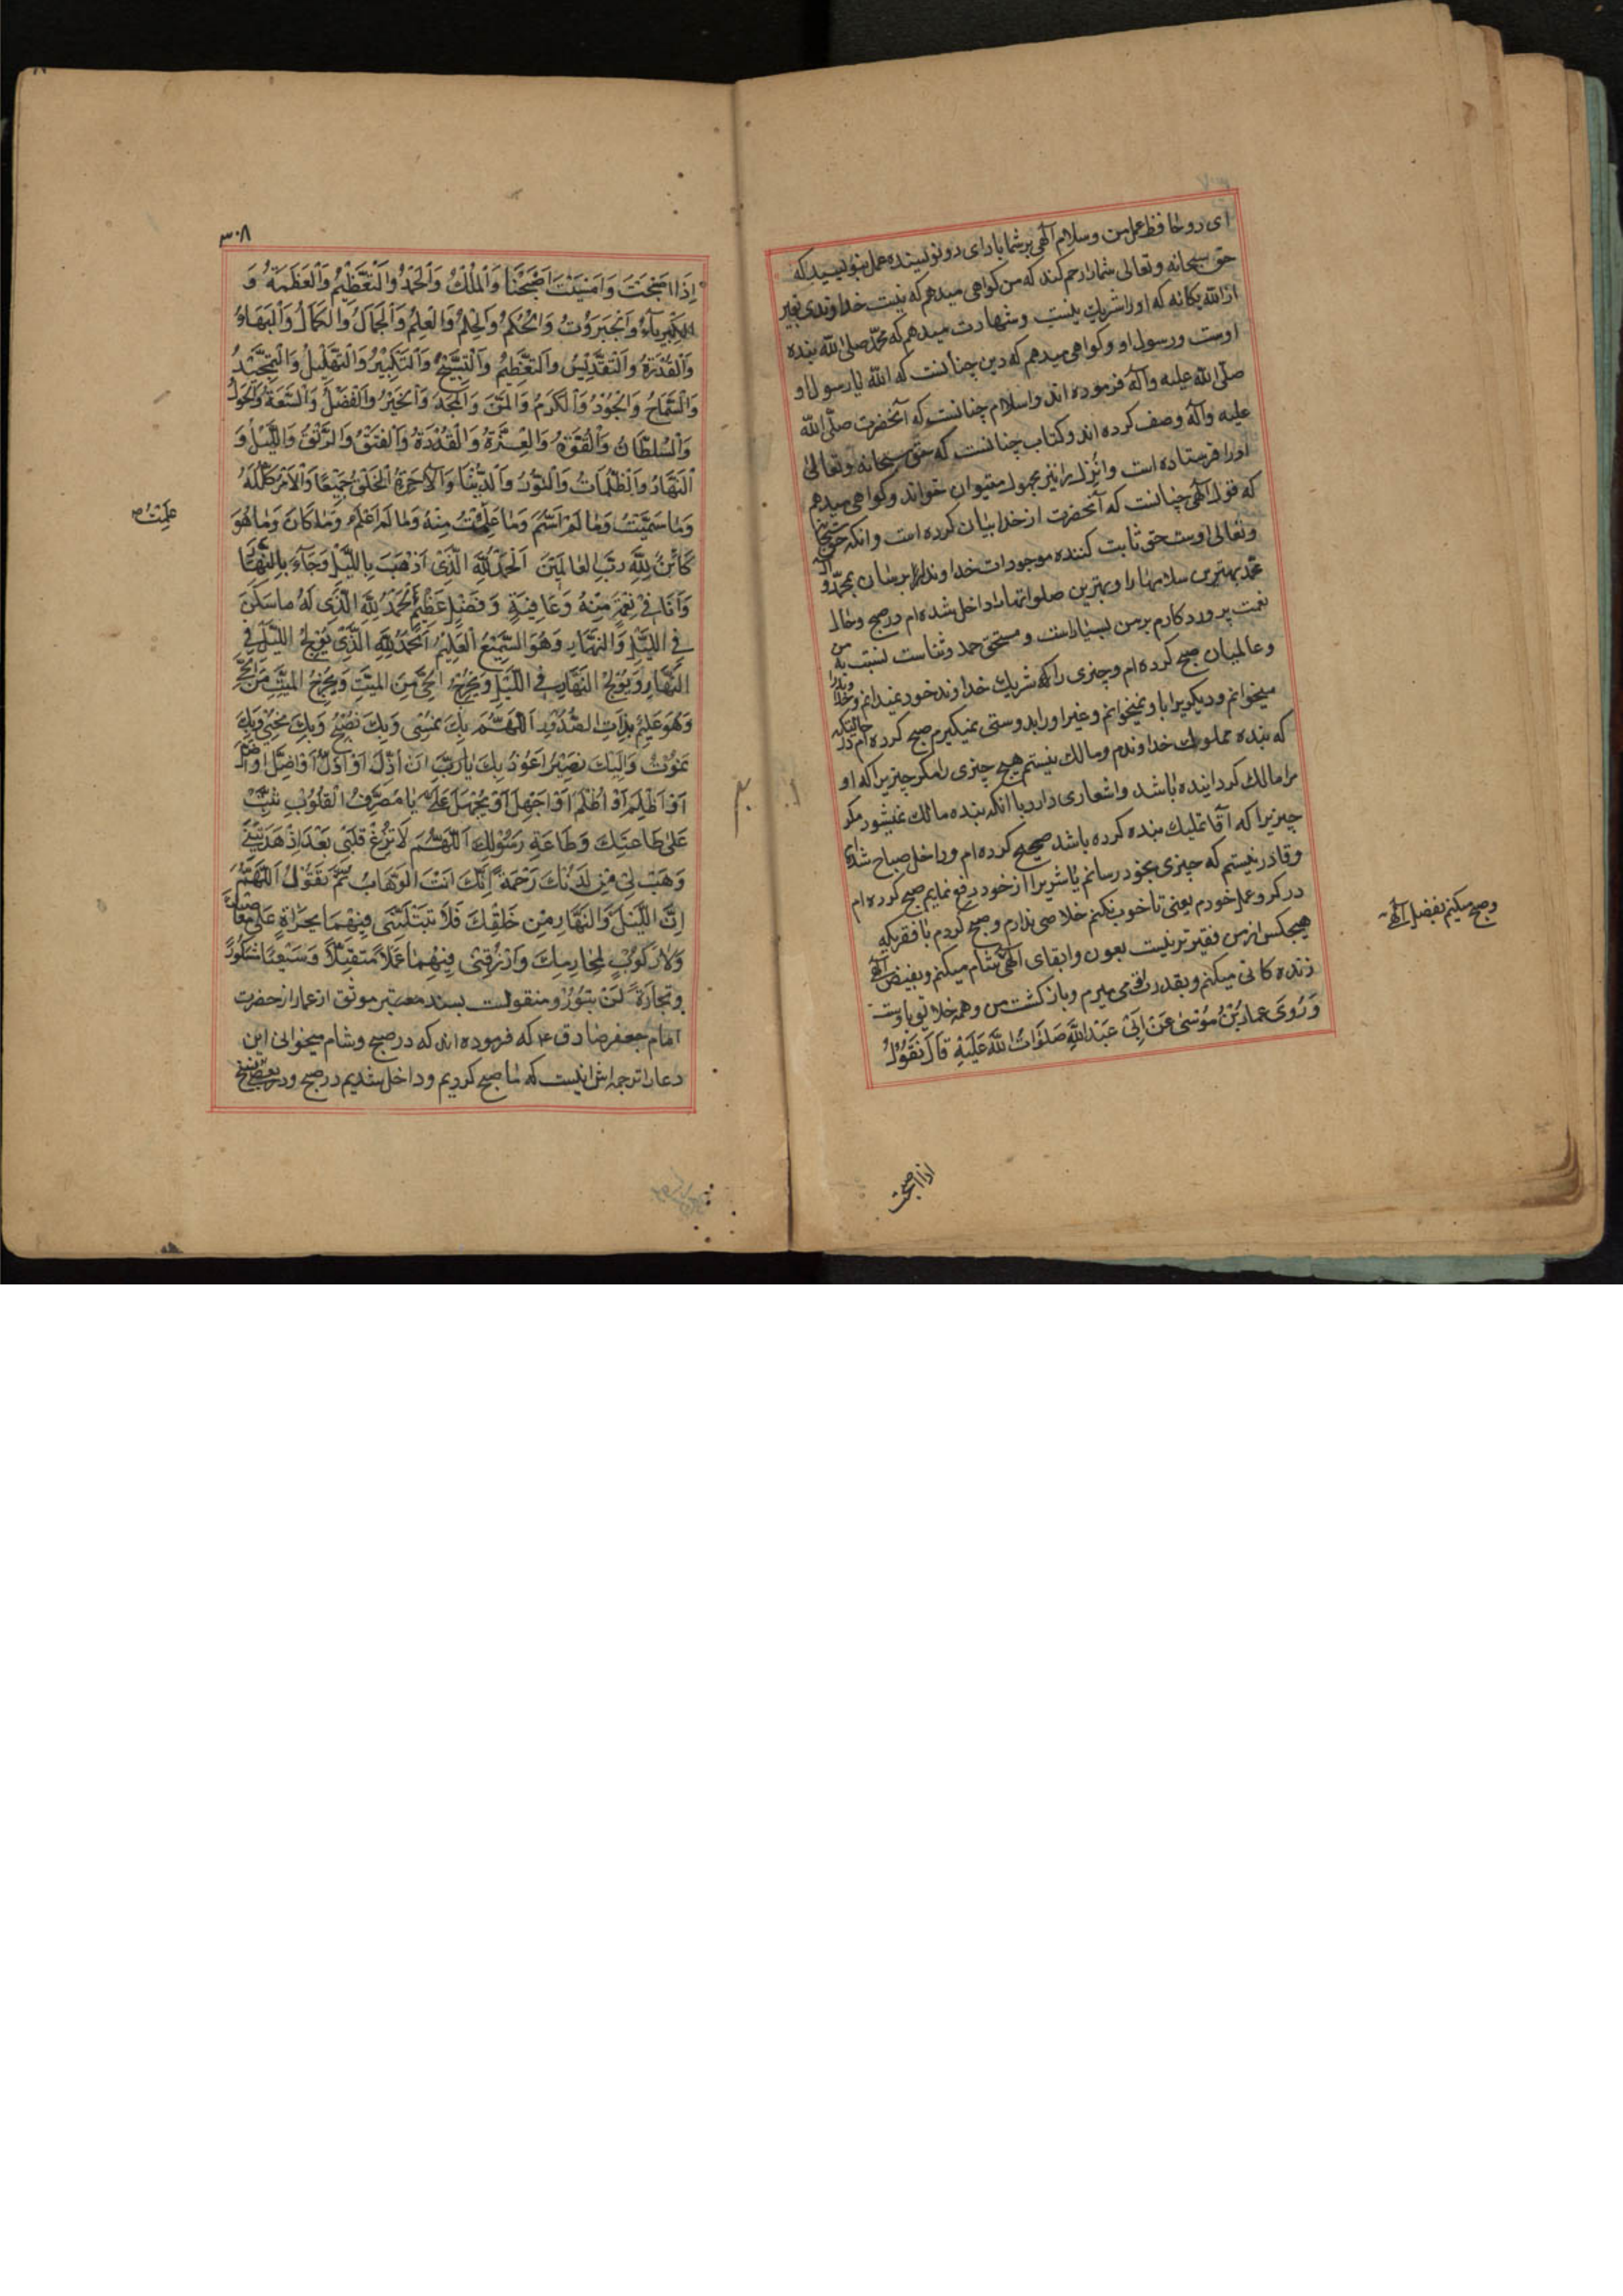 ای دو حافظ عمل من و سلام آلهی بر شما باد ای دو نویسنده عمل بنویسید که
حق سبحانه و تعالی شما را رحم کند که من کواهی میدهم که نیست خداوندی بغیر
از الله یکانه که او را شریك نیست و شهادت میدهم که محمّد صلی الله بنده
اوست و رسول او و کواهی میدهم که دین چنانست که الله یا رسول او
صلّی الله علیه و آله فرموده اند و اسلام چنانست که آنحضرت صلّی الله
علیه و آله وصف کرده اند و کتاب چنانست که حق سبحانه و تعالی
او را فرستاده است و انزل را نیز مجهول میتوان خواند و کواهی میدهم
که قول آلهی چنانست که آنحضرت از خدا بیان کرده است و انکه حق سبحانه
و تعالی اوست حق ثابت کننده موجودات خداوندا برسان بمحمّد و آل
محمد بهترین سلامها را و بهترین صلواتها را داخل شده ام در صبح و حال
نعمت پروردکارم بر من بسیار است و مستحق حمد و ثناست نسبت به من
و عالمیان صبح کرده ام و چیزی را که شریك خداوند خود نمیدانم و خدا
میخوانم و دیکریرا با او نمیخوانم و غیر او را بدوستی نمیکیرم صبح کرده ام در حالتیکه
که بنده مملوك خداوندم و مالك نیستم هیچ چیزی را مکر چیزیرا که او
مرا مالك کردانیده باشد و اشعاری دارد با انکه بنده مالك نمیشود مکر
چیزیرا که آقا تملیك بنده کرده باشد صبح کرده ام و داخل صباح شده ام
و قادر نیستم که چیزی بخود رسانم یا شریرا از خود دفع نمایم صبح کرده ام
در کرو عمل خودم یعنی تا خوب نکنم خلاصی ندارم و صبح کردم با فقریکه
هیچکس از من فقیرتر نیست بعون و ابقای آلهی شام میکنم و بفیض آلهی
زندگانی میکنم و بقدرت او می میرم و بازکشت من و همه خلایق باوست
وَ رُوِیَ عمار بْنُ مُوْسیٰ عَنْ اَبِیْ عَبْدِ اللّٰهِ صَلَوَاتُ اللّٰه عَلَیْهِ قَالَ تَقُوْلُ
و صبح میکنم بفضل آلهی
اذا اصبحت
۳۰۸
اِذَا اَصْبَحْتَ وَ اَمْسَیْتَ اَصْبَحْنَا وَ الْمُلْكُ وَ الْحَمْدُ وَ الْتَعْظِیْمُ وَ الْعَظَمَةُ وَ
الْکِبْرِیآءُ وَ الْجَبَرَوُتُ وَ الْحُکْمُ وَ الْحِلْمُ وَ الْعِلْمُ وَ الْجَمَالُ وَ الْکَمَالُ وَ الْبَهَاءُ
وَ الْقُدْرَةُ وَ الْتَقْدِیْسُ وَ الْتَعْظِیْمُ وَ الْتَسْبِیْحُ وَ الْتَکْبِیْرُ وَ الْتَهْلِیْلُ وَ الْتَمْجِیْدُ
وَ الْسَّمَاحُ وَ الْجُوْدُ وَ الْکَرَمُ وَ الْمَنُّ وَ الْمَجْدُ وَ الْخَیْرُ وَ الْفَضْلُ وَ الْسَّعَةُ وَ الْحَوْلُ
وَ الْسُلْطَانُ وَ الْقُوَّةُ وَ الْعِزَّةُ وَ الْقُدْرَةُ وَ الْفَتْقُ وَ الْرَّتْقُ وَ اللَّیْلُ وَ
النَهَارُ وَ الْظُلُمَاتُ وَ الْنُوْرُ وَ الْدُنْیَا وَ الْآخِرَةُ الْخَلْقُ جَمِیْعًا وَ الْاَمْرُ کُلُّهُ
وَ مَا سَمَّیْتُ وَ مَا لَمْ اُسَمِّ وَ مَا عَلِمْتُ مِنْهُ وَ مَا لَمْ اَعْلَمْ وَ مَا کَانَ وَ مَا هُوَ
کَائِنٌ لِلّٰهِ رَبِّ العَالَمِیْنَ اَلْحَمْدُ لِلّٰهِ الَّذِیْ اَذْهَبَ بِاللَّیْلِ وَ جَآءَ بِالنَّهَارِ
وَ اَنَا فِیْ نِعْمَةٍ مِنْهُ وَ عَافِیَةٍ وَ فَضْلٍ عَظِیْمٍ اَلْحَمْدُ لِلّٰهِ الَّذِی لَهُ ما سَکَنَ
فِی اللَّیْلِ وَ النَّهَارِ وَ هُوَ السَّمِیْعُ الْعَلِیْمُ اَلْحَمْدُ لِلّٰهِ الَّذِیْ یُوْلِجُ اللَّیْلَ فِی
النَّهَارِ وَ یُوْلِجُ النَّهَارَ فِی اللَّیْلِ وَ یُخْرِجُ الْحَیَّ مِنَ الْمَیِّتِ وَ یُخْرِجُ الْمَیِّتَ مِنَ الْحَیِّ
وَ هُوَ عَلِیْمٌ بِذَاتِ الصُّدُوْرِ اَللّٰهُمَّ بِكَ نُمْسِیْ وَ بِكَ نُصْبِحُ وَ بِكَ نَحْیٰی وَ بِكَ
نَمُوْتُ وَ اِلَیْكَ نَصِیْرُ اَعُوْذُ بِكَ یا رَبِّ اَنْ اُذِلَّ اَوْ اُذَلَّ اَوْ اَضِلَّ اَوْ اُضَلَّ
اَوْ اَظْلِمَ اَوْ اُظْلَمَ اَوْ اَجْهَلَ اَوْ یُجْهَلَ عَلَیَّ یَا مُصَرِّفَ الْقُلُوْبِ ثَبِّتْ
عَلیٰ طَاعَتِكَ وَ طَاعَةِ رَسُوْلِكَ اَللّٰهُمَّ لَا تُزِغْ قَلْبِیْ بَعْدَ اِذْ هَدَیْتَنِیْ
وَ هَبْ لِیْ مِنْ لَدُنْكَ رَحْمَةً اِنَّكَ اَنْتَ الْوَهَّابُ ثُمَّ تَقُوْلُ اَللّٰهُمَّ
اِنَّ اللَّیْلَ وَ النَّهَارَ مِنْ خَلْقِكَ فَلَا تَبْتَلِیَنِّیْ فِیْهِمَا بِجُرْأَةٍ عَلیٰ مَعَاصِیْكَ
وَ لَا رُکُوْبٍ لِمَحَارِمِكَ وَ ارْزُقْنِیْ فِیْهِمَا عَمَلًا مُتَقَبَّلًا وَ سَعْیًا مَشْکُوْرًا
وَ تِجَارَةً لَنْ تَبُوْرَ و منقولست بسند معتبر موثق از عمار از حضرت
امام جعفر صادق ع که فرموده اند که در صبح و شام میخوانی این
دعا را ترجمه اش اینست که ما صبح کردیم و داخل شدیم در صبح و در بعضی نسخ
عَلِمْتُ